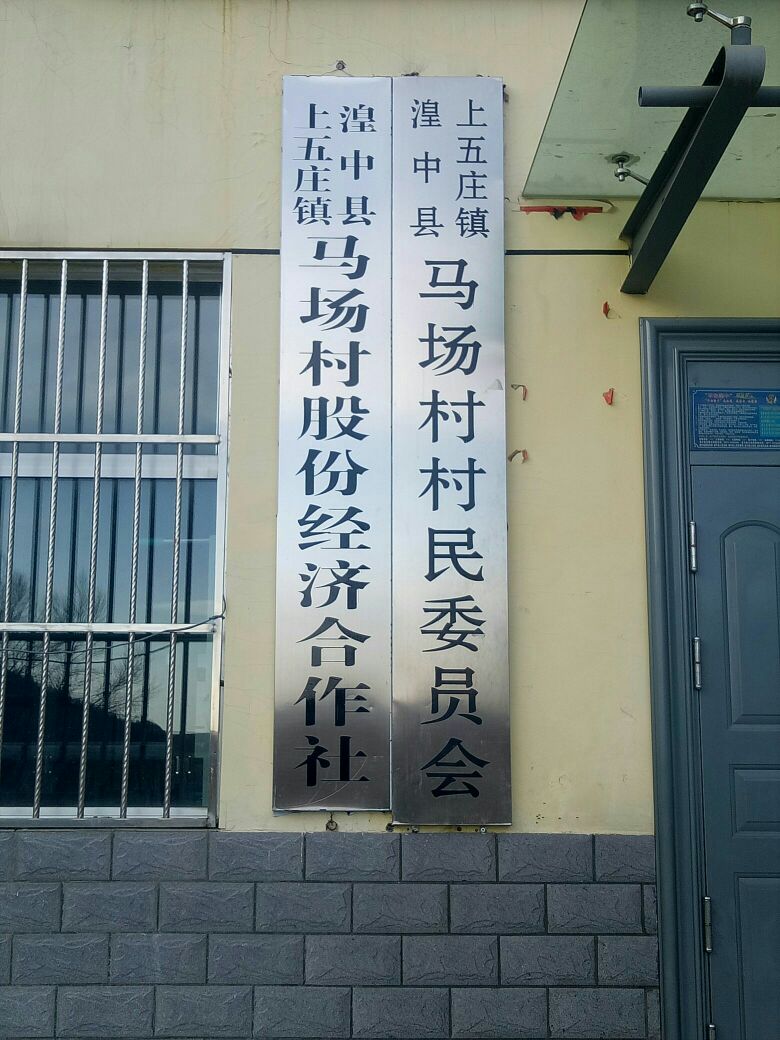 湟中县
上五庄镇
马场村股份经济合作社
湟中县
上五庄镇
马场村村民委员会